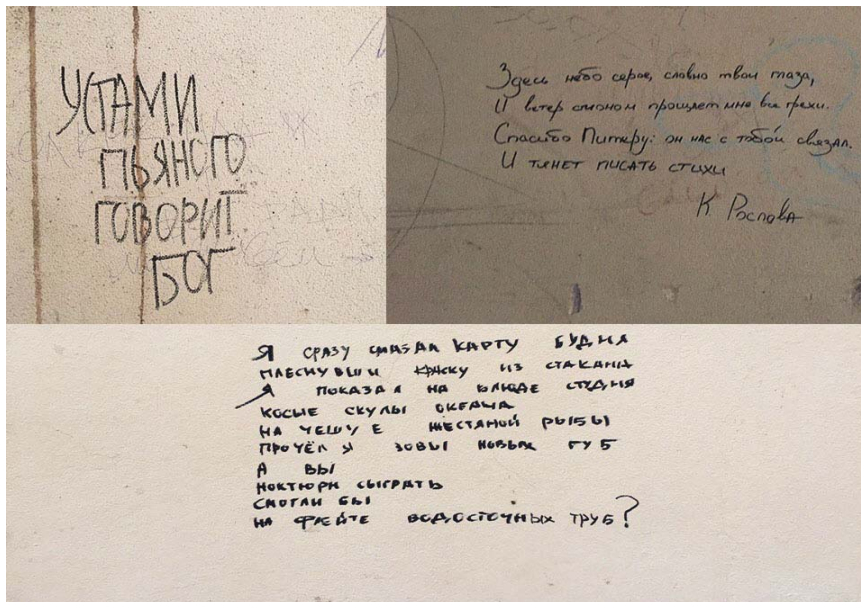 УСТАМИ
ПЬЯНОГО
ГОВОРИТ
БОГ
Здесь небо серое, словно твои глаза,
И ветер смоном прощает мне все грехи.
Спасибо Питеру: он нас с тобой связал.
И тянет писать стихи
К Рослова
Я СРАЗУ СМАЗАЛ КАРТУ БУДНЯ
ПЛЕСНУВШИ КРАСКУ ИЗ СТАКАНА
Я ПОКАЗАЛ НА БЛЮДЕ СТУДНЯ
КОСЫЕ СКУЛЫ ОКЕАНА
НА ЧЕШУЕ ЖЕСТЯНОЙ РЫБЫ
ПРОЧЁЛ Я ЗОВЫ НОВЫХ ГУБ
А ВЫ
НОКТЮРН СЫГРАТЬ
СМОГЛИ БЫ
НА ФЛЕЙТЕ ВОДОСТОЧНЫХ ТРУБ?